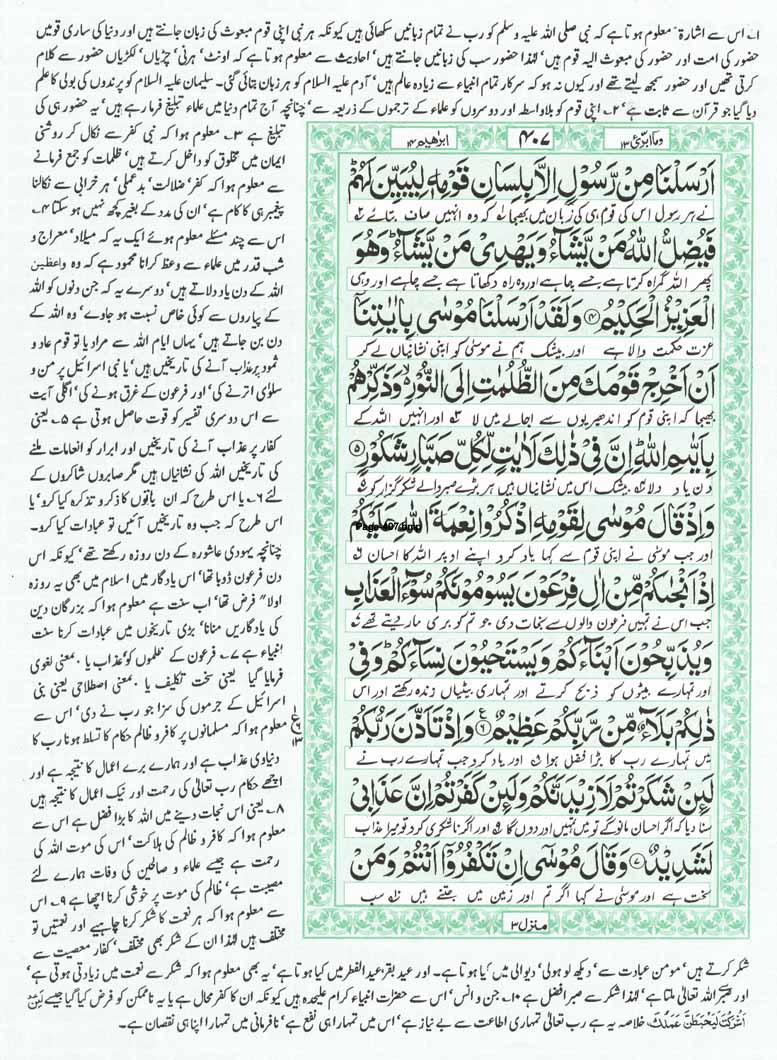 ۱؎ اس سے اشارۃً معلوم ہوتا ہے کہ نبی صلی اللہ علیہ وسلم کو رب نے تمام زبانیں سکھائی ہیں کیونکہ ہر نبی اپنی قوم مبعوث کی زبان جانتے ہیں اور دنیا کی ساری قومیں
حضور کی امت اور حضور کی مبعوث الیہ قوم ہیں، لہٰذا حضور سب کی زبانیں جانتے ہیں، احادیث سے معلوم ہوتا ہے کہ اونٹ، ہرنی، چڑیاں، لکڑیاں حضور سے کلام
کرتی تھیں اور حضور سمجھ لیتے تھے اور کیوں نہ ہو کہ سرکار تمام انبیاء سے زیادہ عالم ہیں، آدم علیہ السلام کو ہر زبان بتائی گئی۔ سلیمان علیہ السلام کو پرندوں کی بولی کا علم
دیا گیا جو قرآن سے ثابت ہے، ۲؎ اپنی قوم کو بلاواسطہ اور دوسروں کو علماء کے ترجموں کے ذریعہ سے، چنانچہ آج تمام دنیا میں علماء تبلیغ فرما رہے ہیں، یہ حضور ہی کی
تبلیغ ہے ۳؎ معلوم ہوا کہ نبی کفر سے نکال کر روشنی
ایمان میں مخلوق کو داخل کرتے ہیں، ظلمات کو جمع فرمانے
سے معلوم ہوا کہ کفر، ضلالت، بدعملی، ہر خرابی سے نکالنا
پیغمبر ہی کا کام ہے، ان کی مدد کے بغیر کچھ نہیں ہو سکتا ۴؎
اس سے چند مسئلے معلوم ہوئے ایک یہ کہ میلاد، معراج و
شب قدر میں علماء سے وعظ کرانا محمود ہے کہ وہ واعظین
اللہ کے دن یاد دلاتے ہیں، دوسرے یہ کہ جن دنوں کو اللہ
کے پیاروں سے کوئی خاص نسبت ہو جاوے، وہ اللہ کے
دن بن جاتے ہیں، یہاں ایام اللہ سے مراد یا تو قوم عاد و
ثمود پر عذاب آنے کی تاریخیں ہیں، یا بنی اسرائیل پر من و
سلویٰ اترنے کی، اور فرعون کے غرق ہونے کی، اگلی آیت
سے اس دوسری تفسیر کو قوت حاصل ہوتی ہے ۵؎ یعنی
کفار پر عذاب آنے کی تاریخیں اور ابرار کو انعامات ملنے
کی تاریخیں اللہ کی نشانیاں ہیں مگر صابروں شاکروں کے
لئے ۶؎ یا اس طرح کہ ان باتوں کا ذکر و تذکرہ کیا کرو، یا
اس طرح کہ جب وہ تاریخیں آئیں تو عبادات کیا کرو۔
چنانچہ یہودی عاشورہ کے دن روزہ رکھتے تھے، کیونکہ اس
دن فرعون ڈوبا تھا، اس یادگار میں اسلام میں بھی یہ روزہ
اولاً فرض تھا، اب سنت ہے معلوم ہوا کہ بزرگان دین
کی یادگاریں منانا، بڑی تاریخوں میں عبادات کرنا سنت
انبیاء ہے ۷؎ فرعون کے ظلموں کو عذاب یا بمعنی لغوی
فرمایا گیا یعنی سخت تکلیف یا بمعنی اصطلاحی یعنی بنی
اسرائیل کے جرموں کی سزا جو رب نے دی، اس سے
معلوم ہوا کہ مسلمانوں پر کافر و ظالم حکام کا تسلط ہونا رب کا
دنیاوی عذاب ہے اور ہمارے برے اعمال کا نتیجہ ہے اور
اچھے حکام رب تعالیٰ کی رحمت اور نیک اعمال کا نتیجہ ہیں
۸؎ یعنی اس نجات دینے میں اللہ کا بڑا فضل ہے اس سے
معلوم ہوا کہ کافر و ظالم کی ہلاکت، اس کی موت اللہ کی
رحمت ہے جیسے علماء و صالحین کی وفات ہمارے لئے
مصیبت ہے، ظالم کی موت پر خوشی کرنا اچھا ہے ۹؎ اس
سے معلوم ہوا کہ ہر نعمت کا شکر کرنا چاہیے اور نعمتیں تو
مختلف ہیں لہٰذا ان کے شکر بھی مختلف، کفار معصیت سے
وما ابرئ ۱۳
۴۰۷
ابراھیم ۱۴
اَرْسَلْنَا مِنْ رَّسُوْلٍ اِلَّا بِلِسَانِ قَوْمِهٖ لِيُبَيِّنَ لَهُمْ
نے ہر رسول اس کی قوم ہی کی زبان میں بھیجا کہ وہ انہیں صاف بتائے
فَيُضِلُّ اللّٰهُ مَنْ يَّشَآءُ وَيَهْدِيْ مَنْ يَّشَآءُ وَهُوَ
پھر اللہ گمراہ کرتا ہے جسے چاہے اور وہ راہ دکھاتا ہے جسے چاہے اور وہی
الْعَزِيْزُ الْحَكِيْمُ ۴ وَلَقَدْ اَرْسَلْنَا مُوْسٰى بِاٰيٰتِنَآ
عزت حکمت والا ہے اور بیشک ہم نے موسیٰ کو اپنی نشانیاں لے کر
اَنْ اَخْرِجْ قَوْمَكَ مِنَ الظُّلُمٰتِ اِلَى النُّوْرِ وَذَكِّرْهُمْ
بھیجا کہ اپنی قوم کو اندھیریوں سے اجالے میں لا اور انہیں اللہ کے
بِاَيّٰمِ اللّٰهِ اِنَّ فِيْ ذٰلِكَ لَاٰيٰتٍ لِّكُلِّ صَبَّارٍ شَكُوْرٍ ۵
دن یاد دلا بیشک اس میں نشانیاں ہیں ہر بڑے صبر والے شکر گزار کو
وَاِذْ قَالَ مُوْسٰى لِقَوْمِهِ اذْكُرُوْا نِعْمَةَ اللّٰهِ عَلَيْكُمْ
Page-407.bmp
اور جب موسیٰ نے اپنی قوم سے کہا یاد کرو اپنے اوپر اللہ کا احسان
اِذْ اَنْجٰىكُمْ مِّنْ اٰلِ فِرْعَوْنَ يَسُوْمُوْنَكُمْ سُوْٓءَ الْعَذَابِ
جب اس نے تمہیں فرعون والوں سے نجات دی جو تم کو بری مار دیتے تھے
وَيُذَبِّحُوْنَ اَبْنَآءَكُمْ وَيَسْتَحْيُوْنَ نِسَآءَكُمْ وَفِيْ
اور تمہارے بیٹوں کو ذبح کرتے اور تمہاری بیٹیاں زندہ رکھتے اور اس
ذٰلِكُمْ بَلَآءٌ مِّنْ رَّبِّكُمْ عَظِيْمٌ ۶ وَاِذْ تَاَذَّنَ رَبُّكُمْ
میں تمہارے رب کا بڑا فضل ہوا اور یاد کرو جب تمہارے رب نے
لَئِنْ شَكَرْتُمْ لَاَزِيْدَنَّكُمْ وَلَئِنْ كَفَرْتُمْ اِنَّ عَذَابِيْ
سنا دیا کہ اگر احسان مانو گے تو میں تمہیں اور دوں گا اور اگر ناشکری کرو تو میرا عذاب
لَشَدِيْدٌ ۷ وَقَالَ مُوْسٰٓى اِنْ تَكْفُرُوْٓا اَنْتُمْ وَمَنْ
سخت ہے اور موسیٰ نے کہا اگر تم اور زمین میں جتنے ہیں سب
منزل ۳
شکر کرتے ہیں، مومن عبادت سے، دیکھ لو ہولی، دیوالی میں کیا ہوتا ہے۔ اور عید بقر، عید الفطر میں کیا ہوتا ہے، یہ بھی معلوم ہوا کہ شکر سے نعمت میں زیادتی ہوتی ہے،
اور صبر اللہ تعالیٰ ملتا ہے، لہٰذا شکر سے صبر افضل ہے ۱۰؎ جن و انس، اس سے حضرات انبیاء کرام علیحدہ ہیں کیونکہ ان کا کفر محال ہے یا یہ ناممکن کو فرض کیا گیا جیسے لَئِنْ
اَشْرَكْتَ لَيَحْبَطَنَّ عَمَلُكَ، خلاصہ یہ ہے رب تعالیٰ تمہاری اطاعت سے بے نیاز ہے، اس میں تمہارا ہی نفع ہے، نافرمانی میں تمہارا اپنا ہی نقصان ہے۔